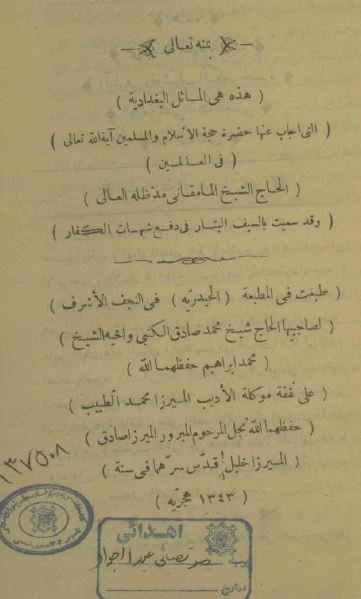 بمنه تعالى
( هذه هى المسائل البغدادية )
( التى اجاب عنها حضرة حجة الأسلام والمسلمين آية الله تعالى )
( فى العالمين )
( الحاج الشيخ المامقانى مد ظله العالى )
( وقد سميت بالسيف البتار فى دفع شبهات الكفار )
طبعت فى المطبعة ( الحيدريه ) فى النجف الأشرف )
لصاحبيها الحاج شيخ محمد صادق الكتبى واخيه الشيخ )
( محمد ابراهيم حفظهما الله )
( على نفقة موكله الأديب الميرزا محمد الطبيب )
( حفظهما الله نجل المرحوم المبرور الميرزا صادق )
( الميرزا خليل قدس سرهما فى سنة )
( ١٣٤٣ هجريه )
١٣٧٥٠٨
اهدائى